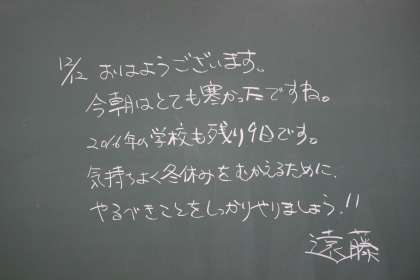 12/12 おはようございます。
今朝はとても寒かったですね。
2016年の学校も残り9日です。
気持ちよく冬休みをむかえるために、
やるべきことをしっかりやりましょう!!
遠藤